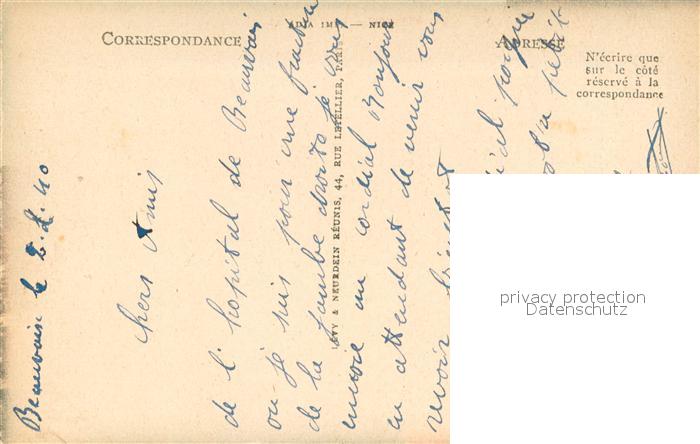 ADIA IMP. — NICE
CORRESPONDANCE
ADRESSE
N'écrire que
sur le côté
réservé à la
correspondance
LÉVY & NEURDEIN RÉUNIS, 44, RUE LETELLIER, PARIS
Beauvais le 2.2.40
Chers Amis
de l'hopital de Beauvais
ou je suis pour une fracture
de la jambe droite je vous
envoie un cordial Bonjour
en attendant de venir vous
revoir
privacy protection
Datenschutz